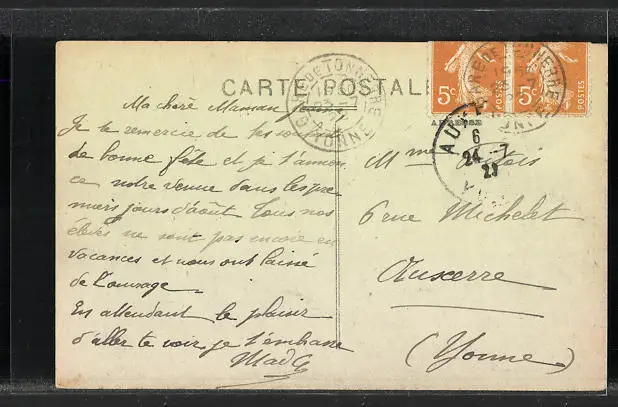 CARTE POSTALE
Ma chère Maman
Je te remercie de tes souhaits
de bonne fête et je t'annon
ce notre venue dans les pre
miers jours d'août Tous nos
élèves ne sont pas encore en
vacances et nous ont laissé
de l'ouvrage.
En attendant le plaisir
d'aller te voir je t'embrasse
Mad
5c POSTES
5c POSTES
TONNERRE
YONNE
AU
6
24-7
23
Mme
6 rue Michelet
Auxerre
(Yonne)